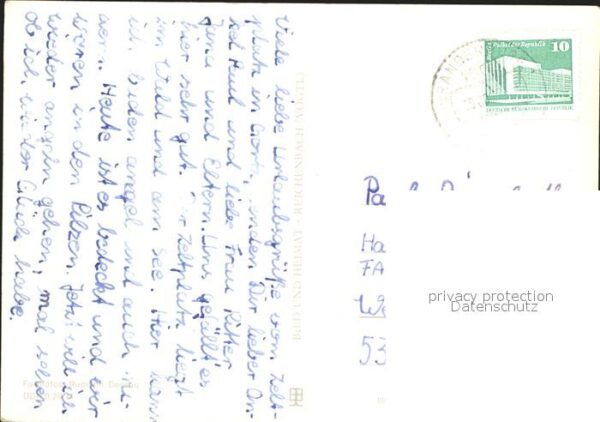 Viele liebe Urlaubsgrüße vom Zelt-
platz in senden Dir lieber On-
kel Paul und liebe Frau Ritter
Jana und Eltern. Uns gefällt es
hier sehr gut. Zeltplatz liegt
im Wald und am See. Hier kann
baden angeln und auch
Heute ist es bedeckt und wir
waren in den Pilzen. Jetzt will ich
wieder angeln gehen, mal sehen
ob ich wieder Glück habe.
BILD UND HEIMAT REICHENBACH (VOGTL)
Berlin Palast der Republik
10
DEUTSCHE DEMOKRATISCHE REPUBLIK
Pa
Ha
FA
53
privacy protection
Datenschutz